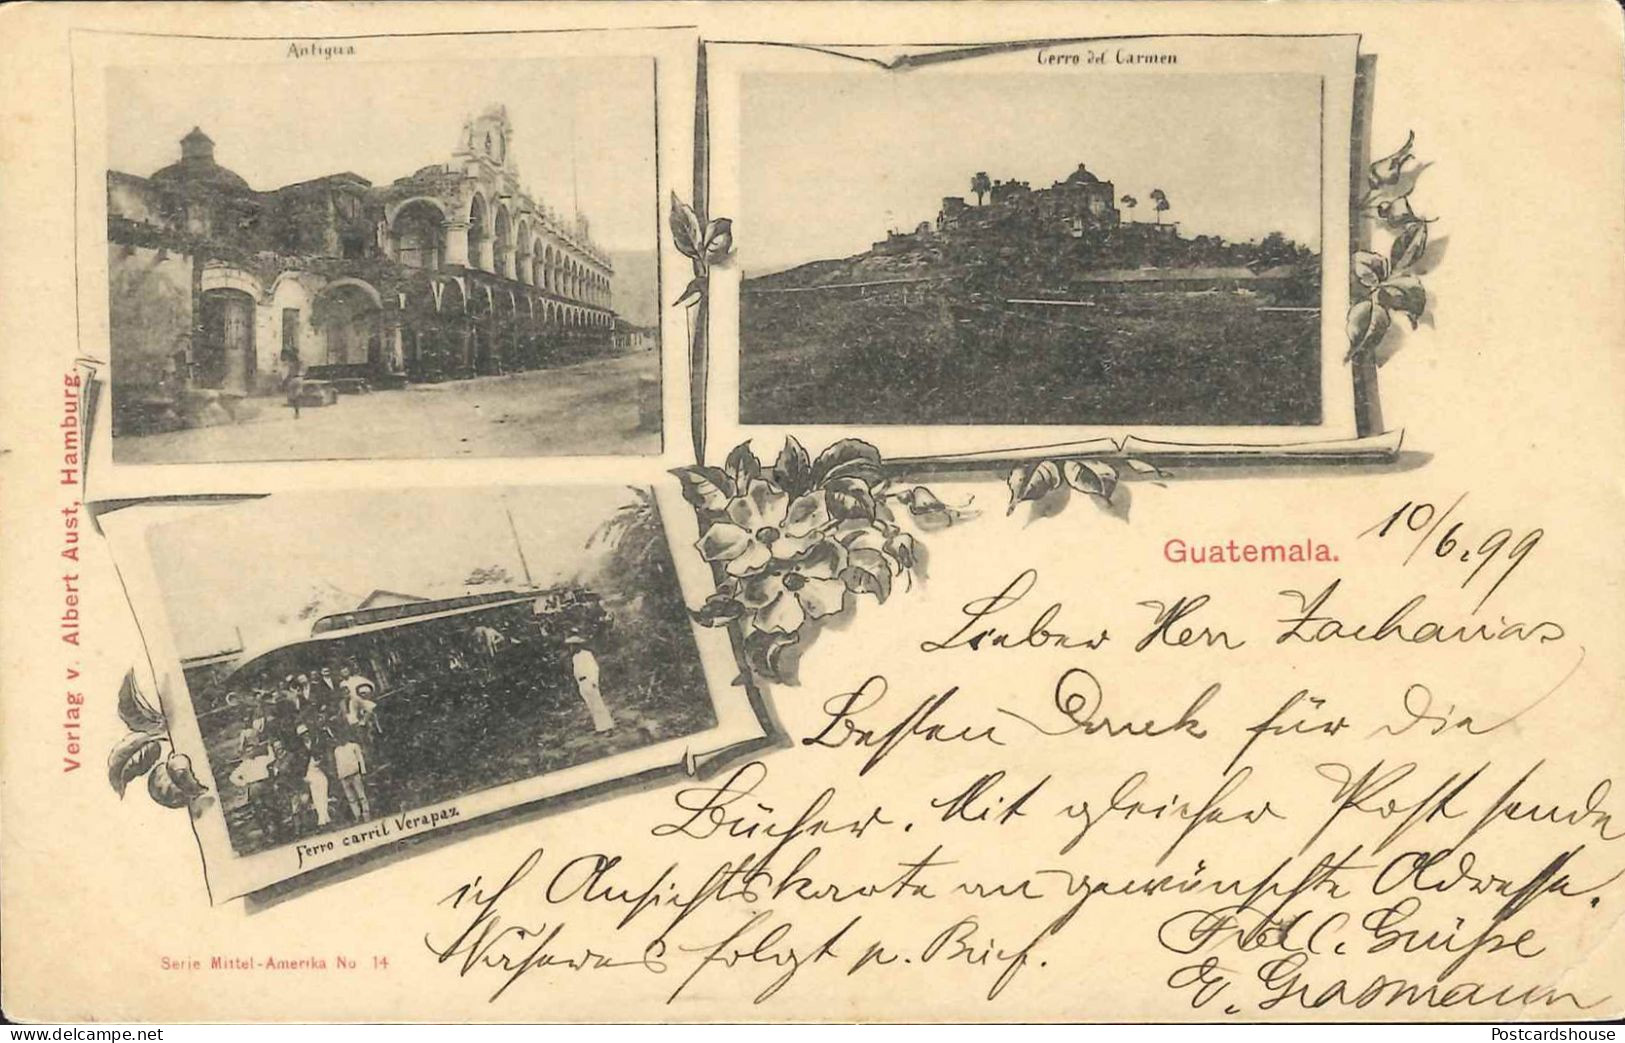 Antigua
Cerro del Carmen
Verlag v. Albert Aust, Hamburg.
Guatemala.
10/6.99
Lieber Herr Zacharias
Besten Dank für die
Bücher. Mit gleicher Post sende
ich Ansichtskarte an gewünschte Adresse.
Näheres folgt p. Brief.
Grüße
E. Grasmann
Ferro carril Verapaz
Serie Mittel-Amerika No 14
Postcardshouse